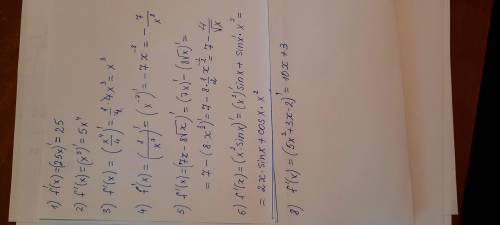 1) f'(x)=(25x)'=25
2) f'(x)=(x⁵)'=5x⁴
3) f'(x)=(x⁴/4)'=1/4·4x³=x³
4) f'(x)=(1/x⁷)'=(x⁻⁷)'=-7x⁻⁸=-7/x⁸
5) f'(x)=(7x-8√x)'=(7x)'-(8√x)'=
=7-(8·x^(1/2))'=7-8·1/2x^(-1/2)=7-4/√x
6) f'(x)=(x²·sinx)'=(x²)'sinx+sinx'·x²=
=2x·sinx+cosx·x²
8) f'(x)=(5x²+3x-2)'=10x+3